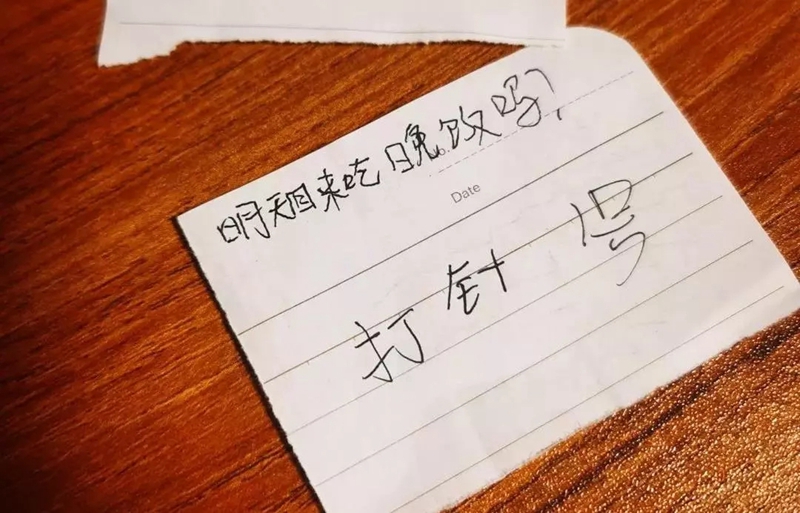 明天回来吃晚饭吗？
Date
打针 号